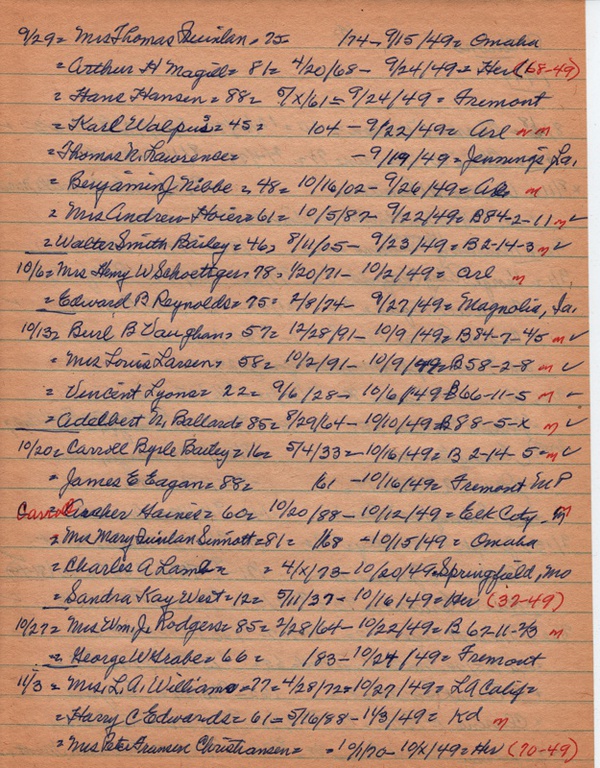 9/29 = Mrs Thomas Quinlan = 75 /74 - 9/15/49 = Omaha
= Arthur H Magill = 81 = 4/20/68 - 9/24/49 = Her (68-49)
= Hans Hansen = 88 = 5/x/61 = 9/24/49 = Fremont
= Karl Walpus = 45 = 104 - 9/22/49 = Arl m
= Thomas N. Lawrence = - 9/19/49 = Jennings, La,
= Benjamin J Nibbe = 48 = 10/16/02 - 9/26/49 = m
= Mrs Andrew Hoier = 61 = 10/5/87 - 9/22/49 = B 84-2-11 m ✓
= Walter Smith Bailey = 46, 8/11/05 - 9/23/49 = B 2-14-3 m ✓
10/6 = Mrs Henry W Schoettger, 78, 1/20/71 - 10/2/49 = Arl m
= Edward B Reynolds = 75 = 2/8/74 - 9/27/49 = Magnolia, Ia,
10/13 = Burl B Vaughan, 57 = 12/28/91 - 10/9/49 = B 84-7-4/5 m ✓
= Mrs Louis Larsen, 58 = 10/2/91 - 10/9/49 = B 58-2-8 m ✓
= Vincent Lyons = 22 = 9/6/28 - 10/6/49 B 66-11-5 m ✓
= Adelbert N. Ballard = 85 = 8/29/64 - 10/10/49 = B 88-5-x m ✓
10/20 = Carroll Byrle Bailey = 16 = 5/4/33 - 10/16/49 = B 2-14-5 = m ✓
= James E Eagan = 88 = /61 - 10/16/49 = Fremont MP
Haines = 60 = 10/20/88 - 10/12/49 = Elk City - m
= Mrs Mary Quinlan Sinnott = 81 = /68 - 10/15/49 = Omaha
= Charles A Lamb = = 4/x/73 - 10/20/49 = Springfield, Mo
= Sandra Kay West = 12 = 5/11/37 - 10/16/49 = Her (37-49)
10/27 = Mrs Wm. J. Rodgers = 85 = 2/28/64 - 10/22/49 = B 62-11-2/3 m
= George W Grabe = 66 = /83 - 10/24/49 = Fremont
11/3 = Mrs. L. A. Williams = 77 = 4/28/72 = 10/27/49 = LA Calif =
= Harry C Edwards = 61 = 5/16/88 - 11/3/49 = Kd m
= Mrs Peter Christiansen = = 10/1/70 - 10/x/49 = Her (70-49)